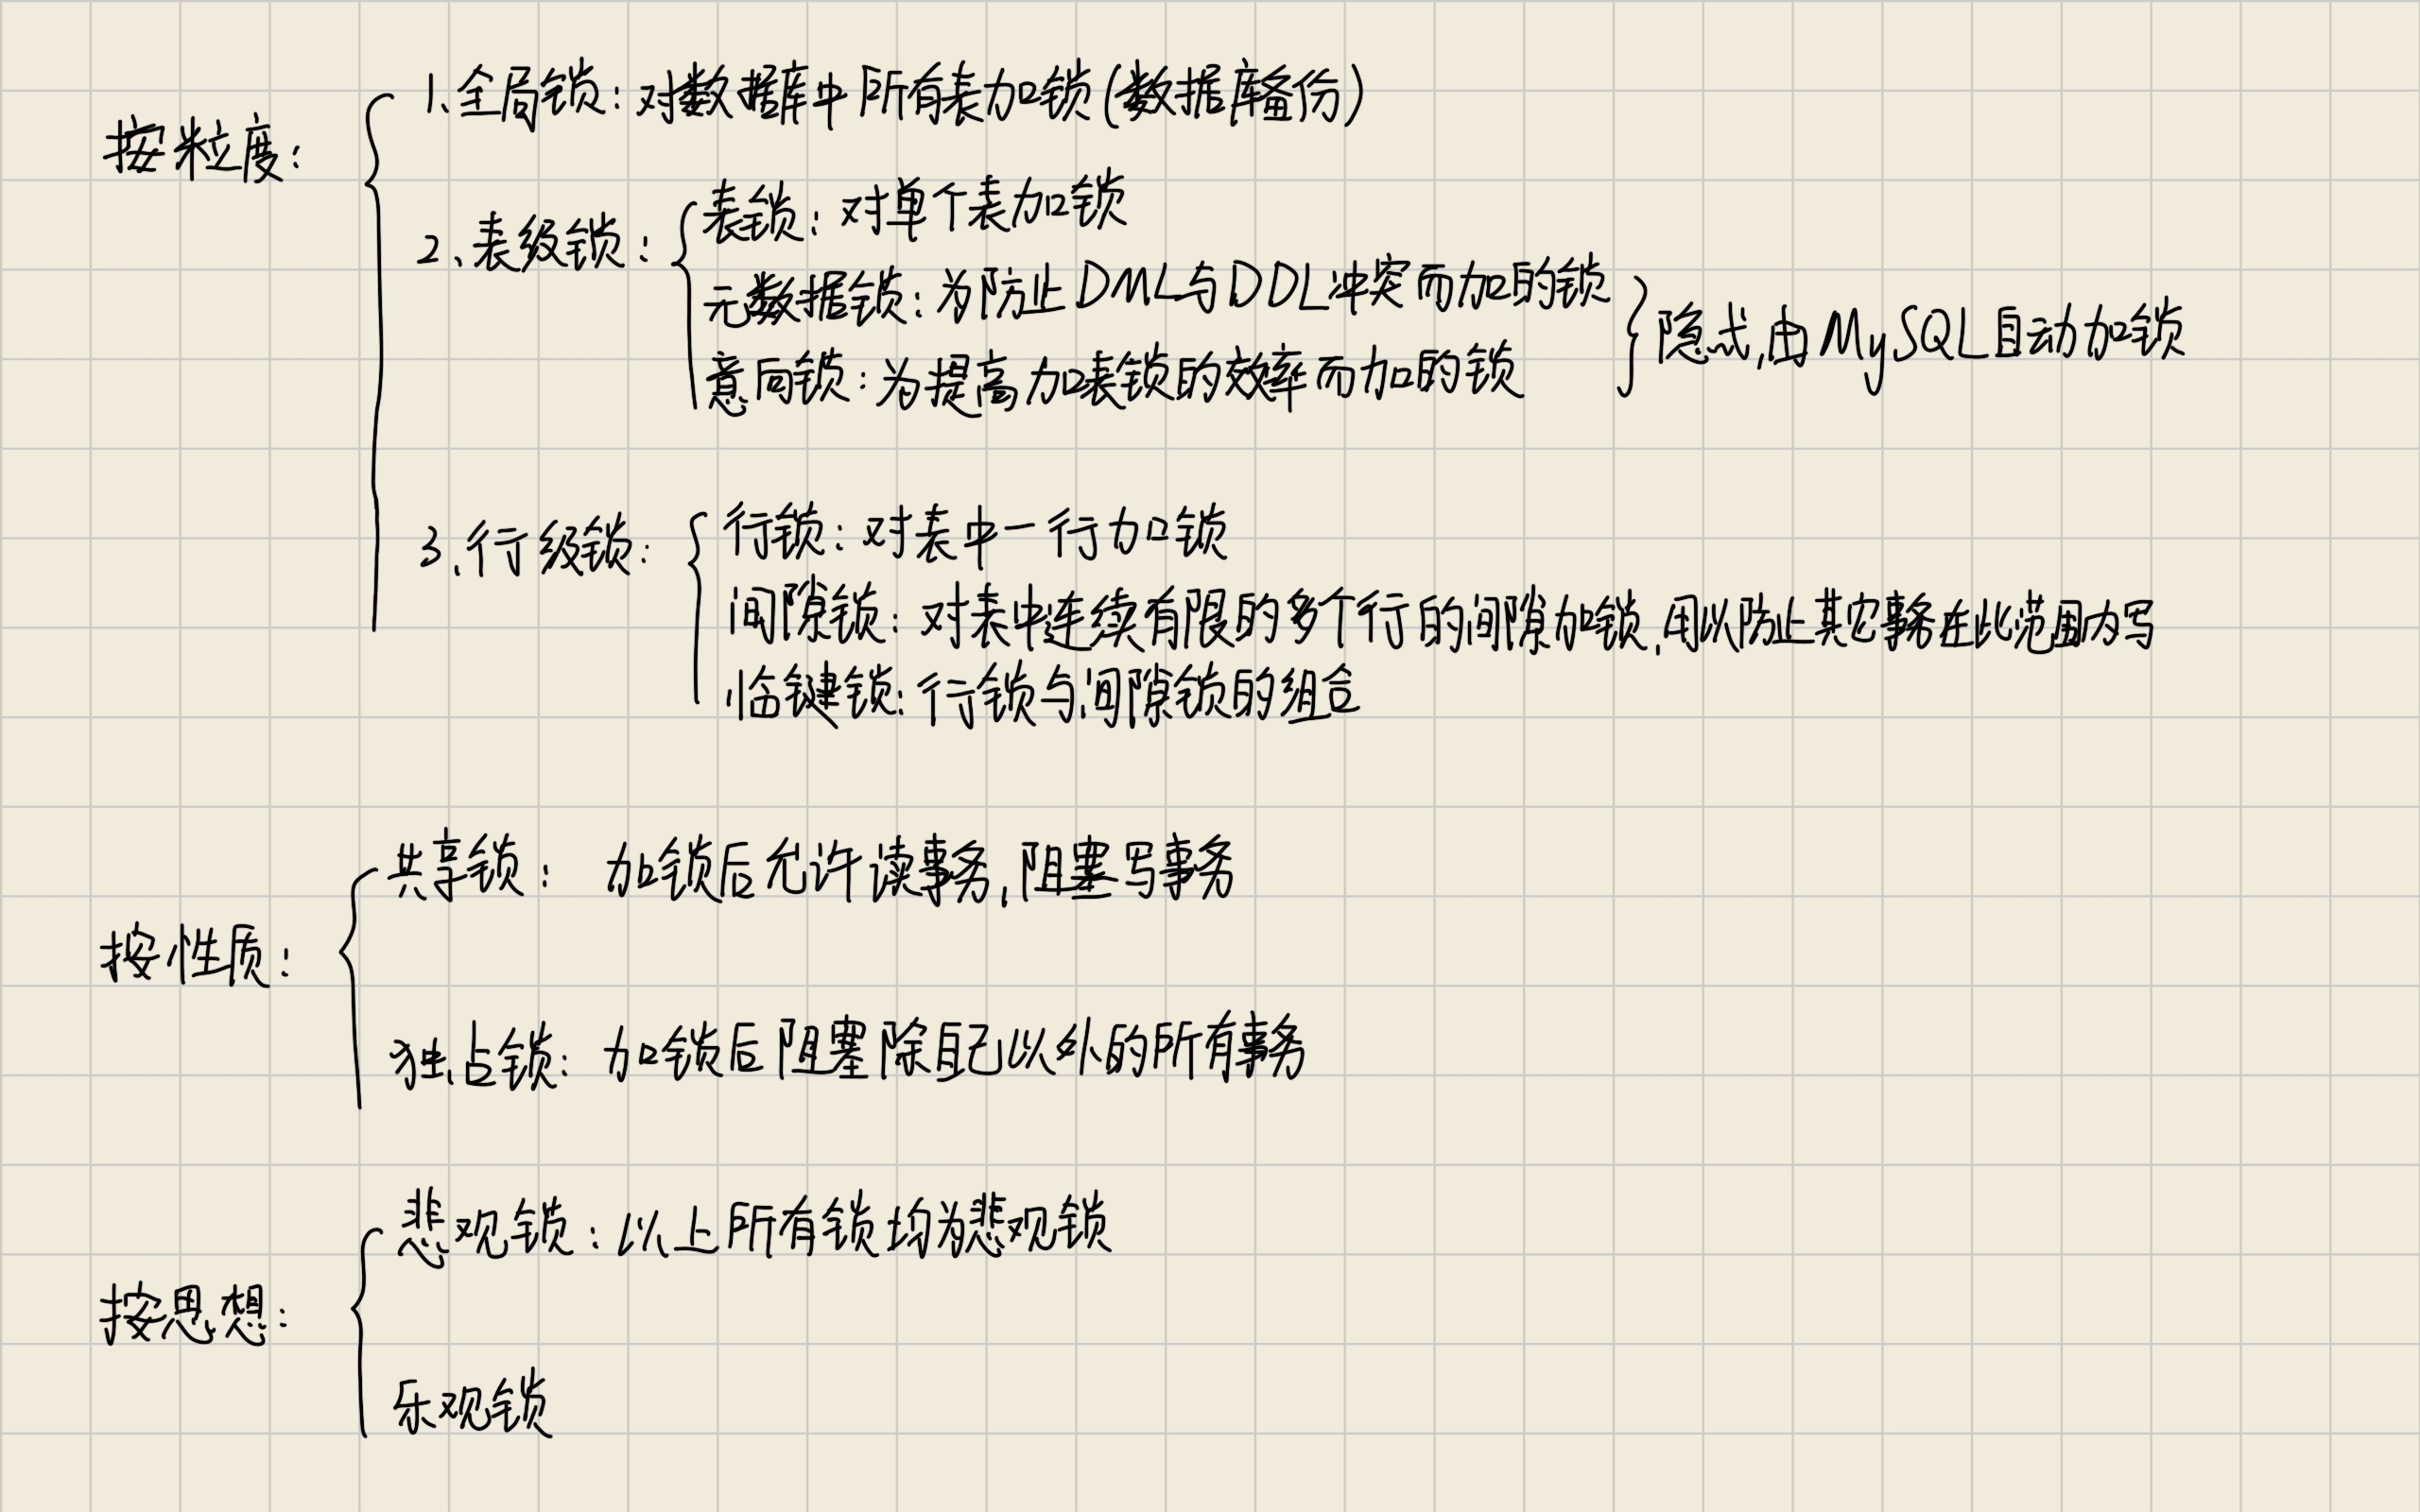 按粒度:
1、全局锁:对数据库中所有表加锁(数据库备份)
2、表级锁:
表锁:对单个表加锁
元数据锁:为防止DML与DDL冲突而加的锁
意向锁:为提高加表锁的效率而加的锁
隐式,由MySQL自动加锁
3、行级锁:
行锁:对表中一行加锁
间隙锁:对表中连续有限的多个行的间隙加锁,用以防止其它事务在此范围内写
临键锁:行锁与间隙锁的组合
按性质:
共享锁: 加锁后允许读事务,阻塞写事务
独占锁:加锁后阻塞除自己以外的所有事务
按思想:
悲观锁:以上所有锁均为悲观锁
乐观锁